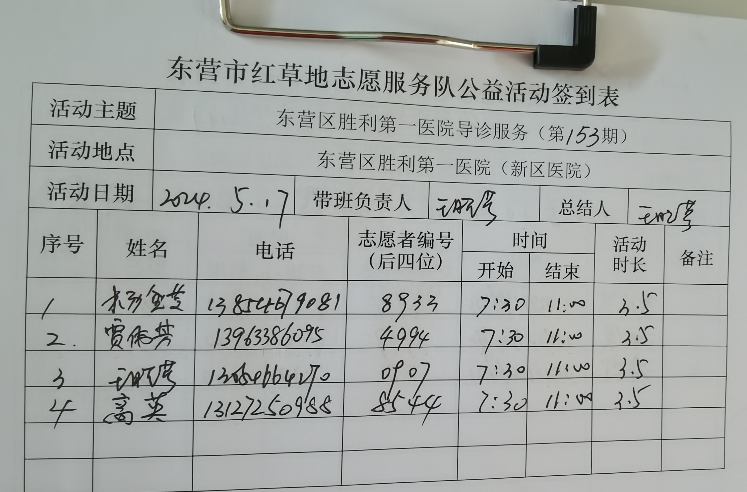 东营市红草地志愿服务队公益活动签到表
活动主题 东营区胜利第一医院导诊服务（第153期）
活动地点 东营区胜利第一医院（新区医院）
活动日期 2024.5.17 带班负责人 总结人
序号 姓名 电话 志愿者编号（后四位） 时间 开始 结束 活动时长 备注
1 8933 7:30 11:00 3.5
2. 13963386095 4994 7:30 11:00 3.5
3 0907 7:30 11:00 3.5
4 高英 13127250988 8544 7:30 11:00 3.5